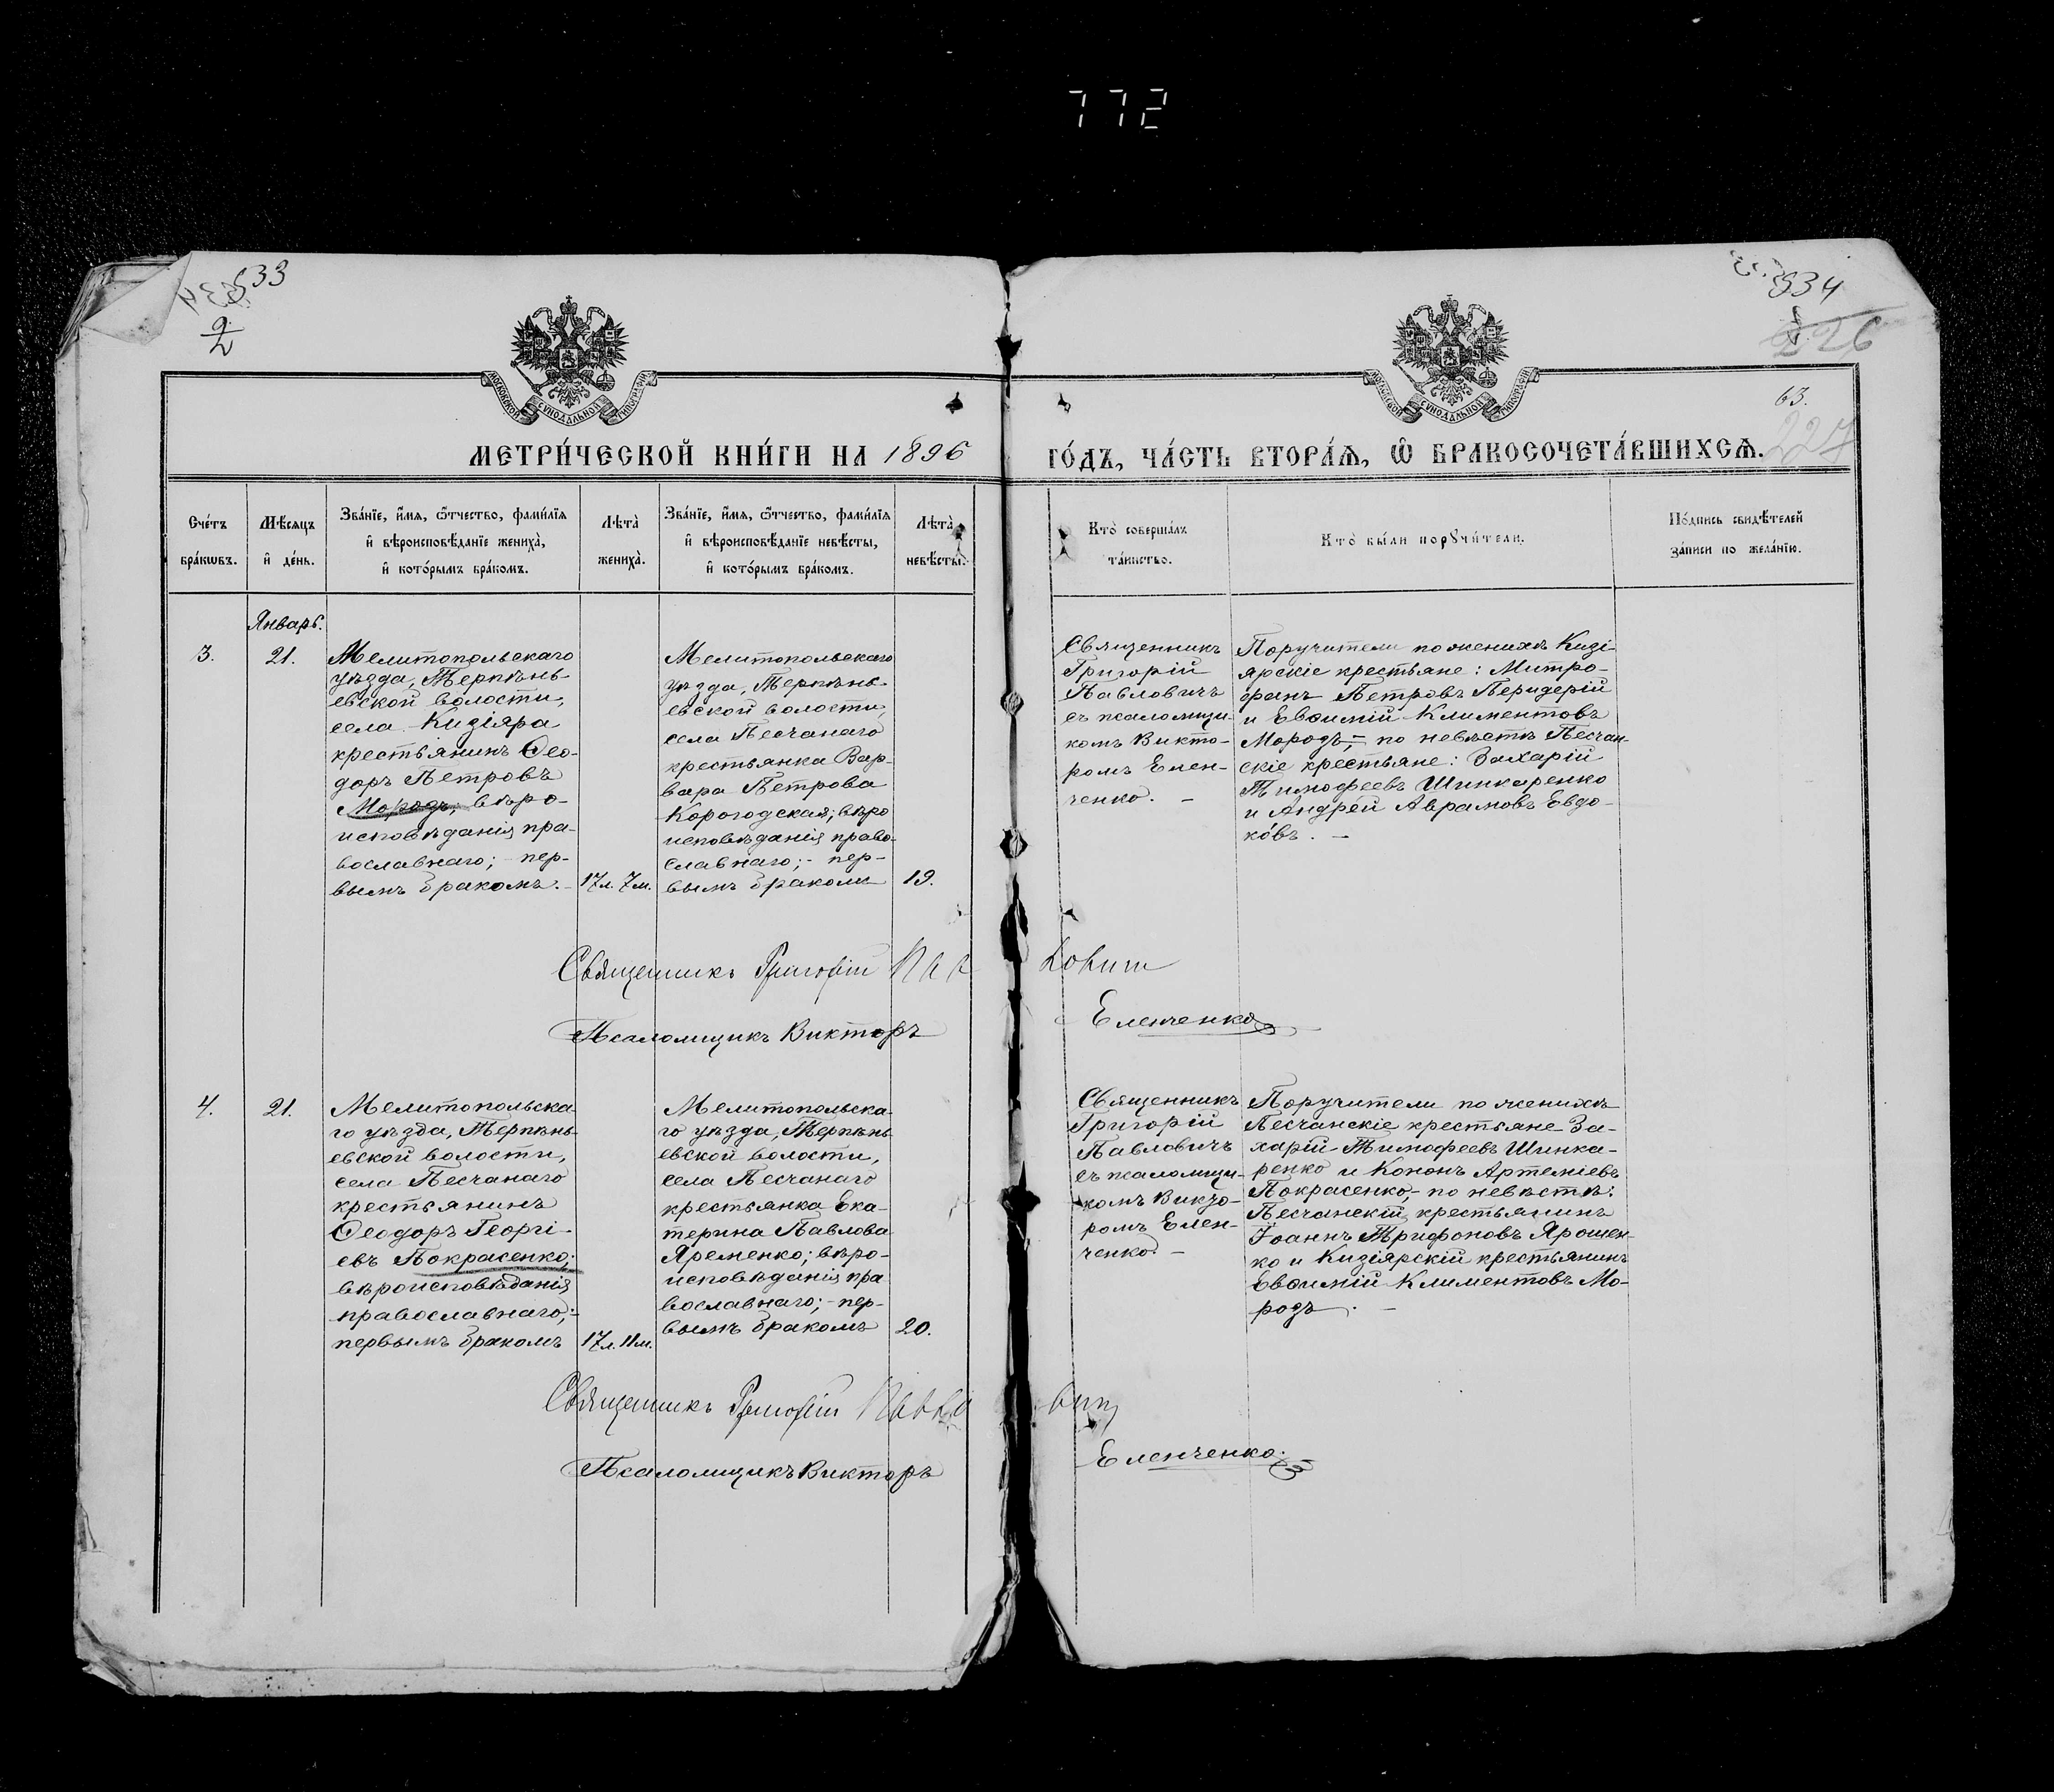 772
533
2
534
226
МОСКОВСКОЙ СѴНОДАЛЬНОЙ ТИПОГРАФІИ
МОСКОВСКОЙ СѴНОДАЛЬНОЙ ТИПОГРАФІИ
63.
227
МЕТРИ́ЧЕСКОЙ КНИ́ГИ НА 1896
ГО́ДЪ, ЧА́СТЬ ВТОРА́Ѧ, Ѡ҆ БРАКОСОЧЕТА́ВШИХСѦ.
Сче́тъ
бра́кѡвъ.
Мѣ́сяцъ
и҆ де́нь.
Зва́нїе, и҆́мя, ѻ҆́тчество, фами́лїя
и҆ вѣроисповѣ́данїе жениха̀,
и҆ кото́рымъ бра́комъ.
Лѣта̀
жениха̀.
Зва́нїе, и҆́мя, ѻ҆́тчество, фами́лїя
и҆ вѣроисповѣ́данїе невѣ́сты,
и҆ кото́рымъ бра́комъ.
Лѣта̀
невѣ́сты.
Кто̀ соверша́лъ
та́инство.
Кто̀ бы́ли порꙋчи́тели.
По́дпись свидѣ́телей
за́писи по жела́нїю.
Январь.
3.
21.
Мелитопольскаго
уѣзда, Терпѣнь-
евской волости,
села Кизіяра
крестьянинъ Ѳео-
доръ Петровъ
Мородъ; вѣро-
исповѣданія пра-
вославнаго; - пер-
вымъ бракомъ. -
17 л. 7 м.
Мелитопольскаго
уѣзда, Терпѣнь-
евской волости,
села Песчанаго
крестьянка Вар-
вара Петрова
Корогодская; вѣро
исповѣданія право-
славнаго; - пер-
вымъ бракомъ
19.
Священникъ
Григорій
Павловичъ
съ псаломщи-
комъ Викто-
ромъ Елен-
ченко. -
Поручители по женихѣ Кизі-
ярскіе крестьяне: Митро-
фанъ Петровъ Перидерій
и Евѳимій Климентовъ
Мородъ; - по невѣстѣ Песчан-
скіе крестьяне: Захарій
Тимофеевъ Шинкаренко
и Андрей Аврамовъ Евдо-
ковъ. -
Священникъ Григорій Павловичъ
Псаломщикъ Викторъ Еленченко
4.
21.
Мелитопольска-
го уѣзда, Терпѣнь-
евской волости,
села Песчанаго
крестьянинъ
Ѳеодоръ Георгі-
евъ Покрасенко;
вѣроисповѣданія
православнаго; -
первымъ бракомъ
17 л. 11 м.
Мелитопольска-
го уѣзда, Терпѣнь-
евской волости,
села Песчанаго
крестьянка Ека-
терина Павлова
Яременко; вѣро-
исповѣданія пра
вославнаго; - пер-
вымъ бракомъ
20.
Священникъ
Григорій
Павловичъ
съ псаломщи-
комъ Викто-
ромъ Елен-
ченко. -
Поручители по женихѣ
Песчанскіе крестьяне За-
харій Тимофеевъ Шинка-
ренко и Кононъ Артеміевъ
Покрасенко, - по невѣстѣ:
Песчанскій крестьянинъ
Іоаннъ Трифоновъ Ярошен-
ко и Кизіярскій крестьянинъ
Евѳимій Климентовъ Мо-
родъ. -
Священникъ Григорій Павловичъ
Псаломщикъ Викторъ Еленченко.